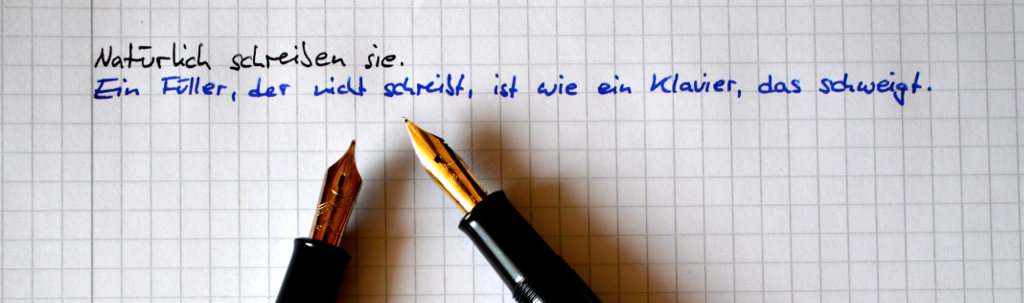 Natürlich schreiben sie.
Ein Füller, der nicht schreibt, ist wie ein Klavier, das schweigt.